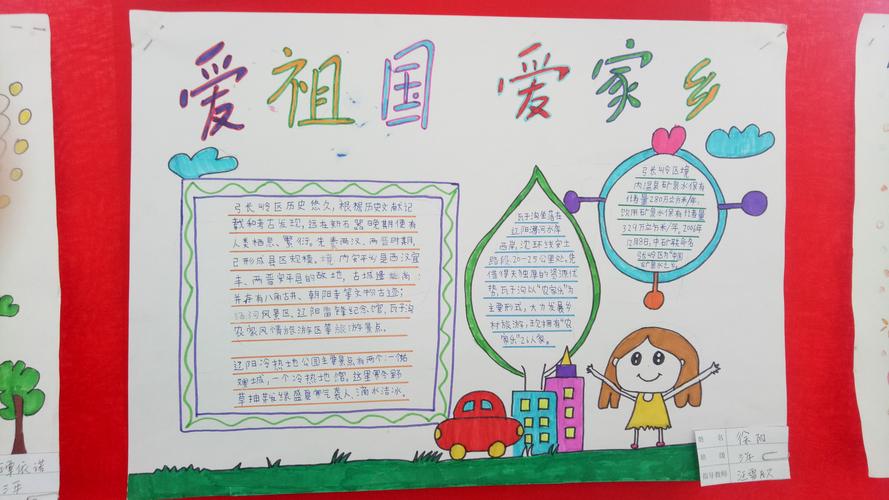 爱祖国 爱家乡
弓长岭区历史悠久,根据历史文献记
载和考古发现,远在新石器晚期便有
人类栖息、繁衍。先秦两汉、两晋时期,
已形成县区规模。境内安平乡是西汉宜
丰、两晋安平县的故地,古城遗址尚
并存有八角古井、朝阳寺等文物古迹;
汤河风景区、辽阳雷锋纪念馆、瓦子沟
农家风情旅游区等旅游景点。
辽阳冷热地公园主要景点有两个:一個
一个冷热地馆,这里寒冬野
草抽芽发绿盛夏寒气袭人、滴水洁冰。
瓦子沟坐落在
辽阳汤河水库
西岸,沈环线安土
路段20-25公里处,凭
借得天独厚的资源优
势,瓦子沟以“农家乐”为
主要形式,大力发展乡
村旅游,现拥有“农
家乐”26人家。
弓长岭区境
内温泉矿泉水保有
储量280万立方米/年,
饮用矿泉水保有储量
329万立方米/年,2006年
12月8日,中矿联命名
弓长岭区为“中国
矿泉水之乡
姓名 徐阳
班级 三年
指导教师 汪
谭依诺
三年